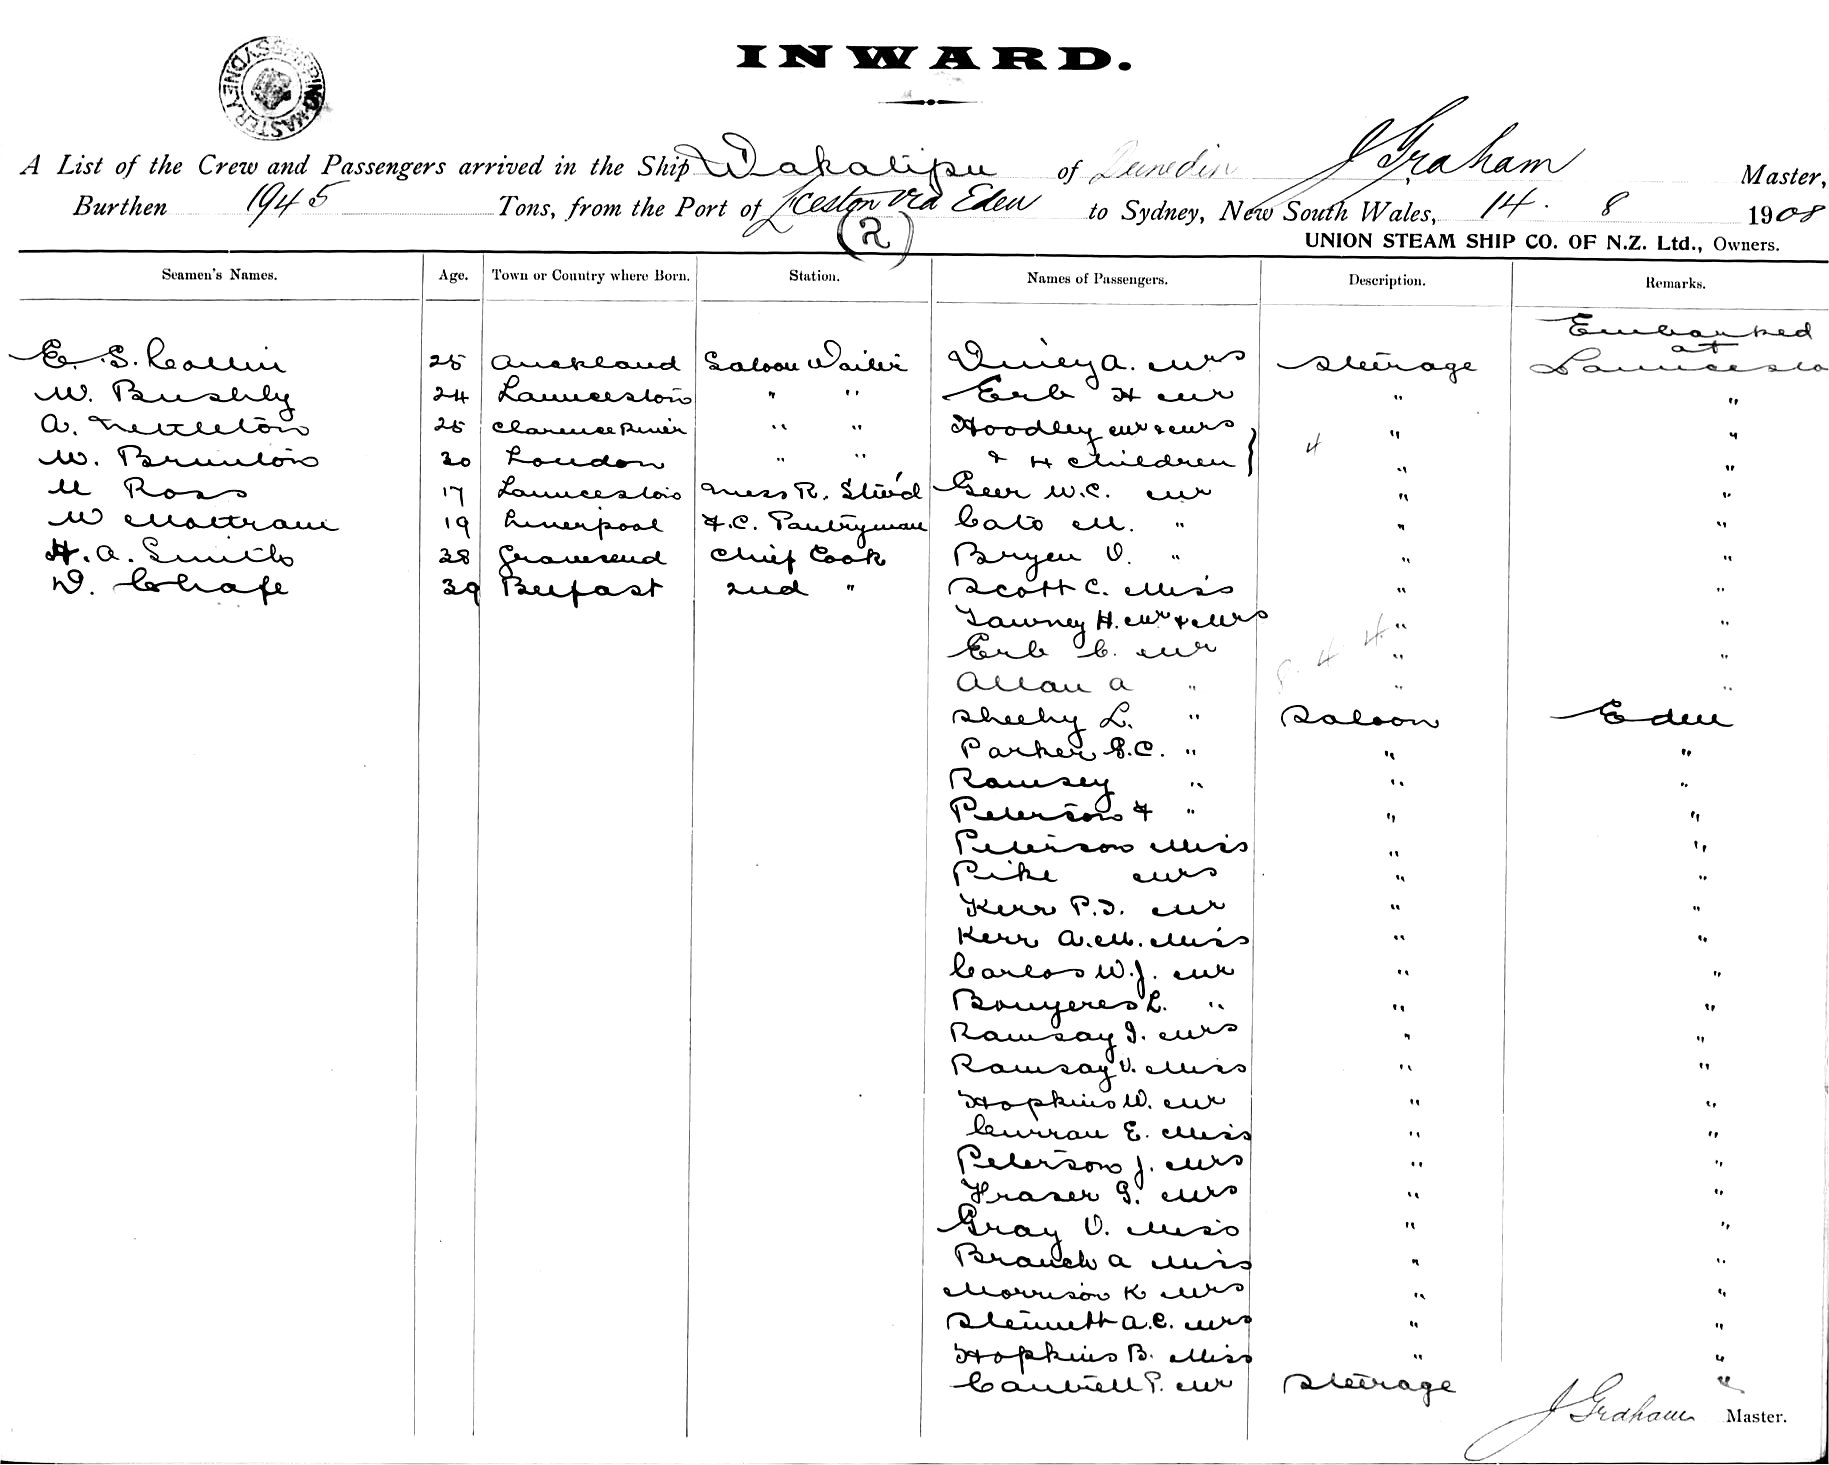 INWARD.
SHIPPING MASTER SYDNEY
A List of the Crew and Passengers arrived in the Ship Wakatipu of Dunedin J Graham Master,
Burthen 1945 Tons, from the Port of L'ceston via Eden to Sydney, New South Wales, 14. 8 1908
(2) UNION STEAM SHIP CO. OF N.Z. Ltd., Owners.
Seamen's Names. Age. Town or Country where Born. Station. Names of Passengers. Description. Remarks.
Embarked
at
E. S. Collin 25 Auckland Saloon Waiter A. Mrs Steerage Launcesto
W. Bushby 24 Launceston " " Erb H Mr " "
A. Nettleton 25 Clarence River " " Hoodley Mr & Mrs " "
W. Brunton 30 London " " & 4 Children } 4 " "
M Ross 17 Launceston Mess R. Stew'd Geer W.C. Mr " "
W Mottram 19 Liverpool F.C. Pantryman Cato M. " " "
H. A. Smith 38 Gravesend Chief Cook Bryen V. " " "
D. Chafe 39 Belfast 2nd " Scott C. Miss " "
Tawney H. Mr & Mrs " "
Erb C. Mr " "
Allan A " " "
Sheehy L. " Saloon Eden
Parker G.C. " " "
Ramsey " " "
Peterson F " " "
Peterson Miss " "
Pike Mrs " "
Kerr P.J. Mr " "
Kerr A.M. Miss " "
Carlos W.J. Mr " "
Bouyeres L. " " "
Ramsay I. Mrs " "
Ramsay V. Miss " "
Hopkins W. Mr " "
Curran E. Miss " "
Peterson J. Mrs " "
Fraser G. Mrs " "
Gray V. Miss " "
Branch A Miss " "
Morrison K Mrs " "
Stennett A.C. Mrs " "
Hopkins B. Miss " "
Cantrell P. Mr Steerage "
J Graham Master.